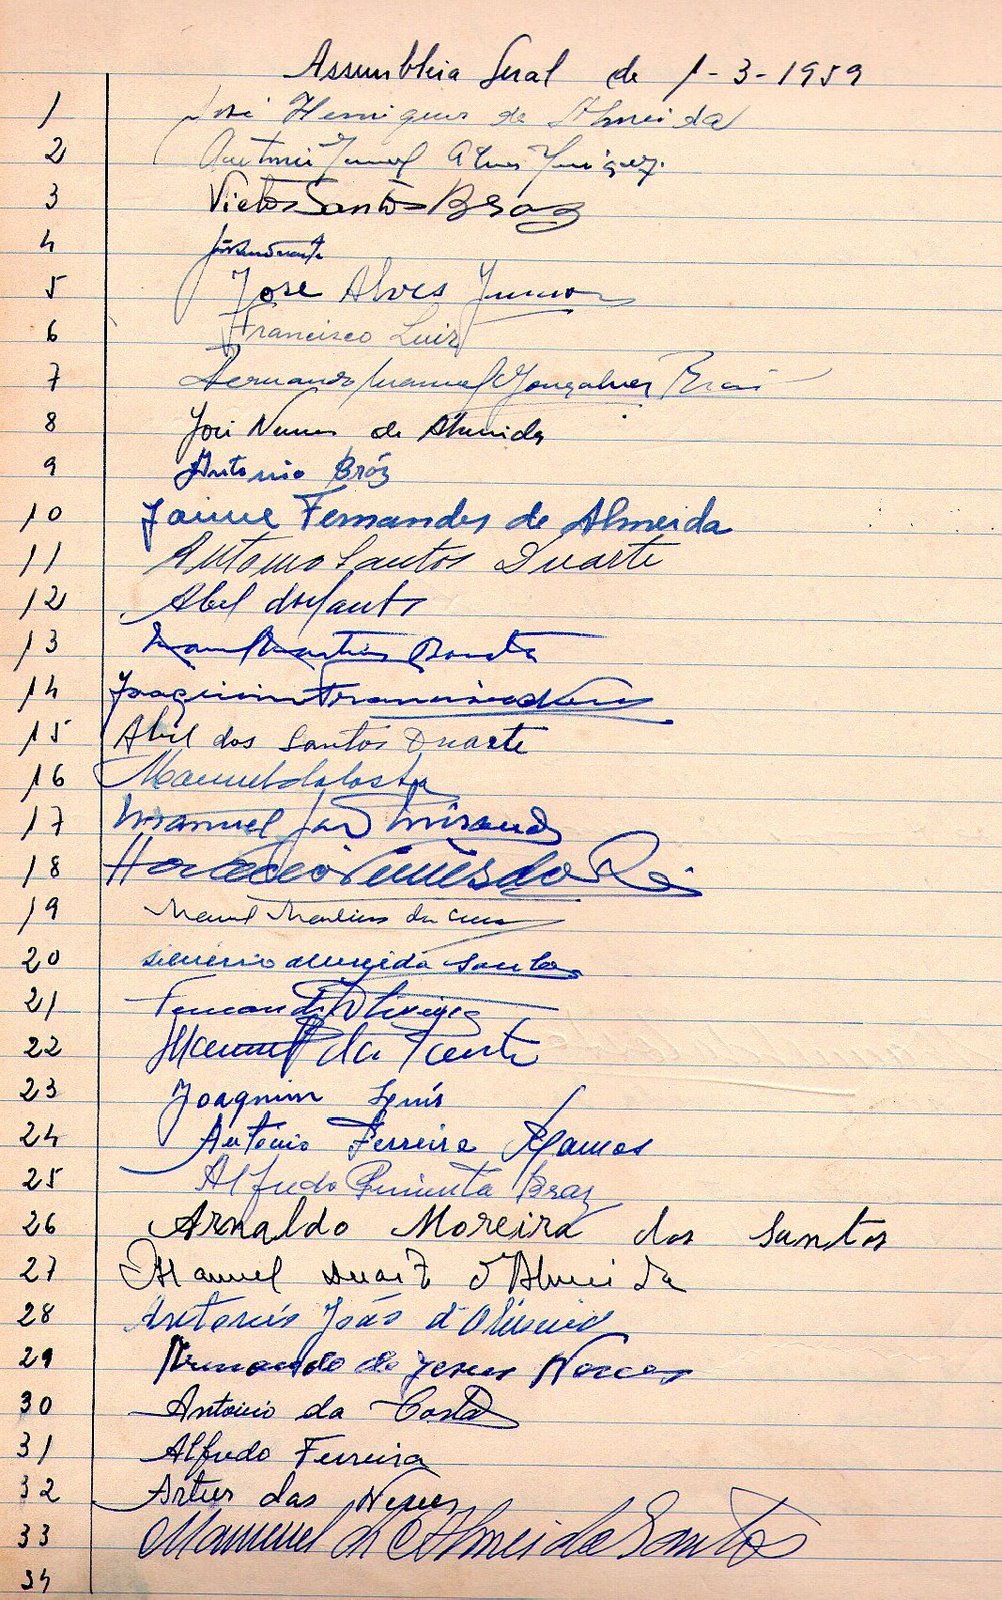 Assembleia Geral de 1-3-1959
1 José Henriques de Almeida
2 Alves
3 Victor Santos Braz
4
5 José Alves Junior
6 Francisco Luiz
7 Fernando Manuel Gonçalves Braz
8 José Nunes de Almeida
9 Antonio Bráz
10 Jaime Fernandes de Almeida
11 Antonio Santos Duarte
12 Abel
13 Martins
14 Joaquim Francisco
15 Abil dos Santos Duarte
16 Manuel da Costa
17 Manuel
18 Nunes dos Reis
19 Manuel Martins da
20 almeida Santos
21 Fernando Oliveira
22 Manuel da
23 Joaquim
24 Antonio Ferreira Ramos
25 Alfredo Pimenta Braz
26 Arnaldo Moreira dos Santos
27 Manuel Duarte d'Almeida
28 João d'
29 de Jesus
30 Antonio da Costa
31 Alfredo Ferreira
32 Artur das Neves
33 Manuel de Almeida Santos
34